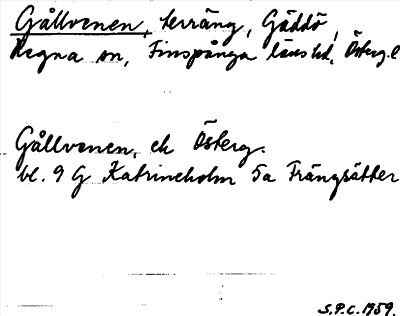 Gållvenen, terräng, Gäddö,
Regna sn, Finspånga läns hd, Österg. l
Gållvenen, ek Österg.
bl. 9 G Katrineholm 5a Trängsätter
S.P.C. 1959.